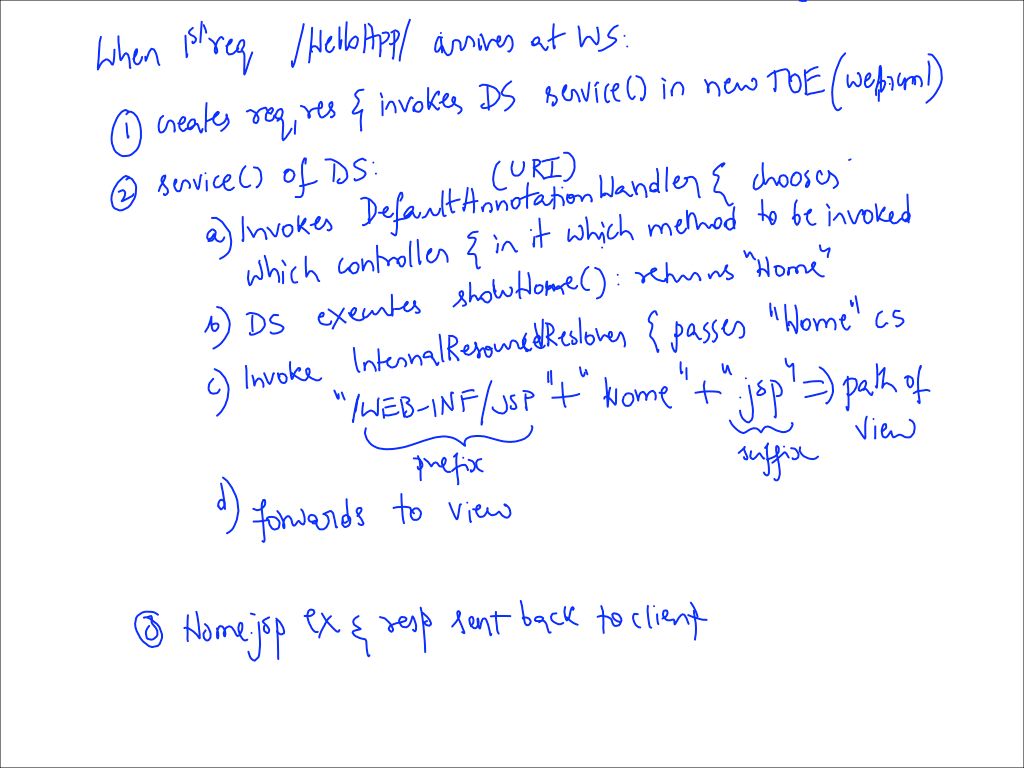 When 1st req /HelloApp/ arrives at WS:
① creates req, res & invokes DS service() in new TOE (web.xml)
② service() of DS: (URI)
a) Invokes DefaultAnnotationHandler & chooses
which controller & in it which method to be invoked
b) DS executes showHome(): returns "Home"
c) Invoke InternalResourceReslover & passes "Home" cs
"/WEB-INF/JSP" + "Home" + ".jsp" => path of
view
prefix suffix
d) forwards to view
③ Home.jsp ex & resp sent back to client